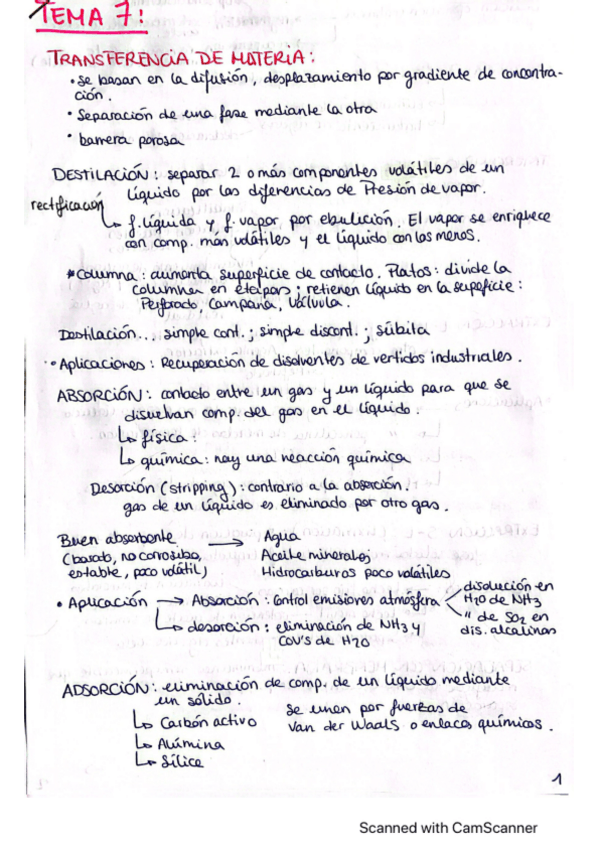 TEMA 7:
TRANSFERENCIA DE MATERIA:
• se basan en la difusión, desplazamiento por gradiente de concentra-
ción.
• Separación de una fase mediante la otra
• barrera porosa
DESTILACIÓN: separar 2 o más componentes volátiles de un
líquido por las diferencias de Presión de vapor.
rectificación
↳ f. líquida y f. vapor por ebullición. El vapor se enriquece
con comp. más volátiles y el líquido con los menos.
* Columna: aumenta superficie de contacto. Platos: divide la
columna en etapas; retienen líquido en la superficie:
Perforado, Campana, Válvula.
Destilación... simple cont.; simple discont.; súbita
• Aplicaciones: Recuperación de disolventes de vertidos industriales.
ABSORCIÓN: contacto entre un gas y un líquido para que se
disuelvan comp. del gas en el líquido.
↳ física:
↳ química: hay una reacción química
Desorción (stripping): contrario a la absorción.
gas de un líquido es eliminado por otro gas.
Buen absorbente → Agua
(barato, no corrosivo, Aceite minerales
estable, poco volátil) Hidrocarburos poco volátiles
• Aplicación → Absorción: Control emisiones atmósfera < disolución en
H2O de NH3
" de SO2 en
dis. alcalinas
↳ desorción: eliminación de NH3 y
COV's de H2O
ADSORCIÓN: eliminación de comp. de un líquido mediante
un sólido.
↳ Carbón activo
↳ Alúmina
↳ Sílice
Se unen por fuerzas de
Van der Waals o enlaces químicos.
1
Scanned with CamScanner